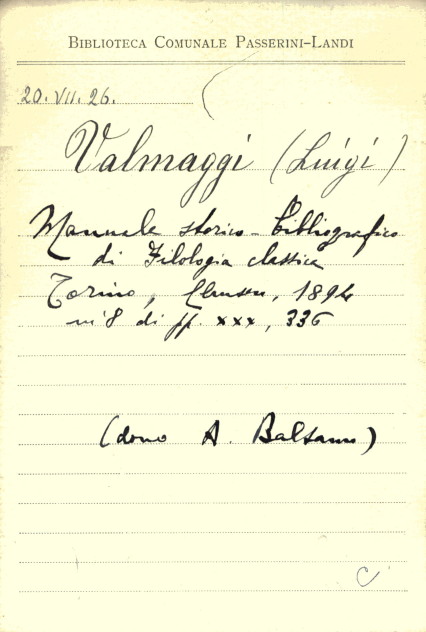 BIBLIOTECA COMUNALE PASSERINI-LANDI
20. VII. 26.
Valmaggi (Luigi)
Manuale storico-bibliografico
di Filologia classica
Torino, Clausen, 1894
in 8 di pp. xxx, 336
(dono A. Balsamo)
C